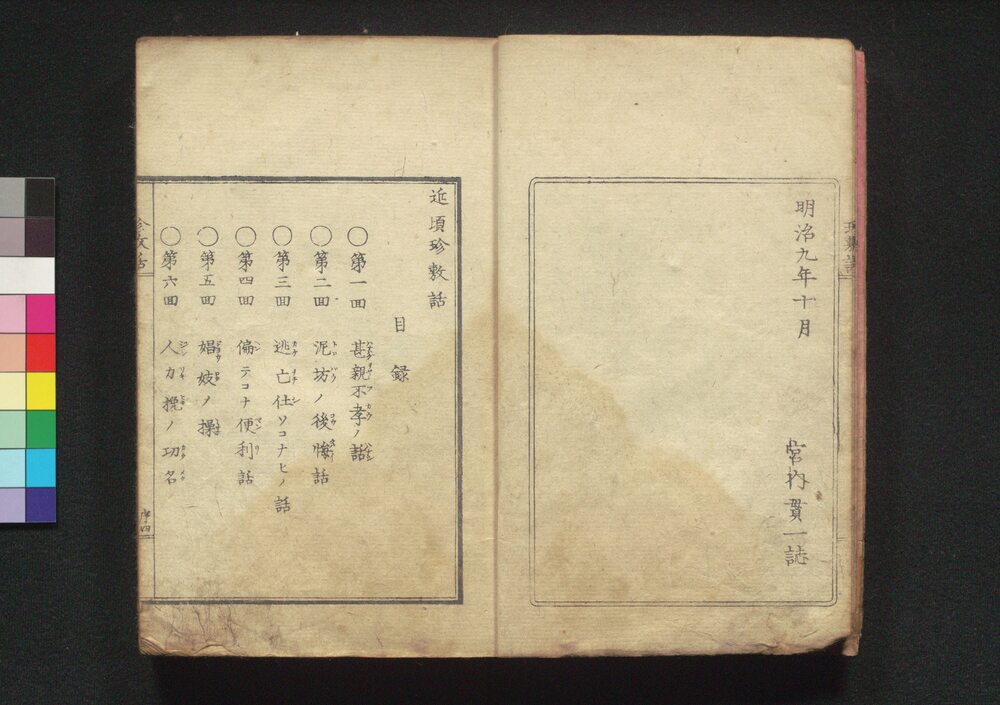 明治九年十月
宮内貫一誌
近頃珍敷話
目録
○第一回 甚親不孝ノ話
○第二回 泥坊ノ後悔話
○第三回 逃亡仕ソコナヒノ話
○第四回 偏テコナ便利話
○第五回 娼妓ノ操
○第六回 人力挽ノ功名
序四